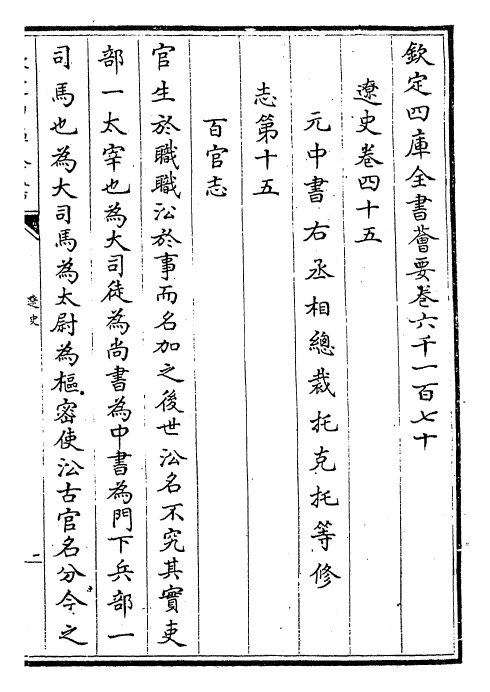 欽定四庫全書薈要卷六千一百七十
遼史卷四十五
元中書右丞相總裁托克托等修
志第十五
百官志
官生於職職㳂於事而名加之後世㳂名不究其實吏
部一太宰也為大司徒為尚書為中書為門下兵部一
司馬也為大司馬為太尉為樞密使㳂古官名分今之
遼史
二